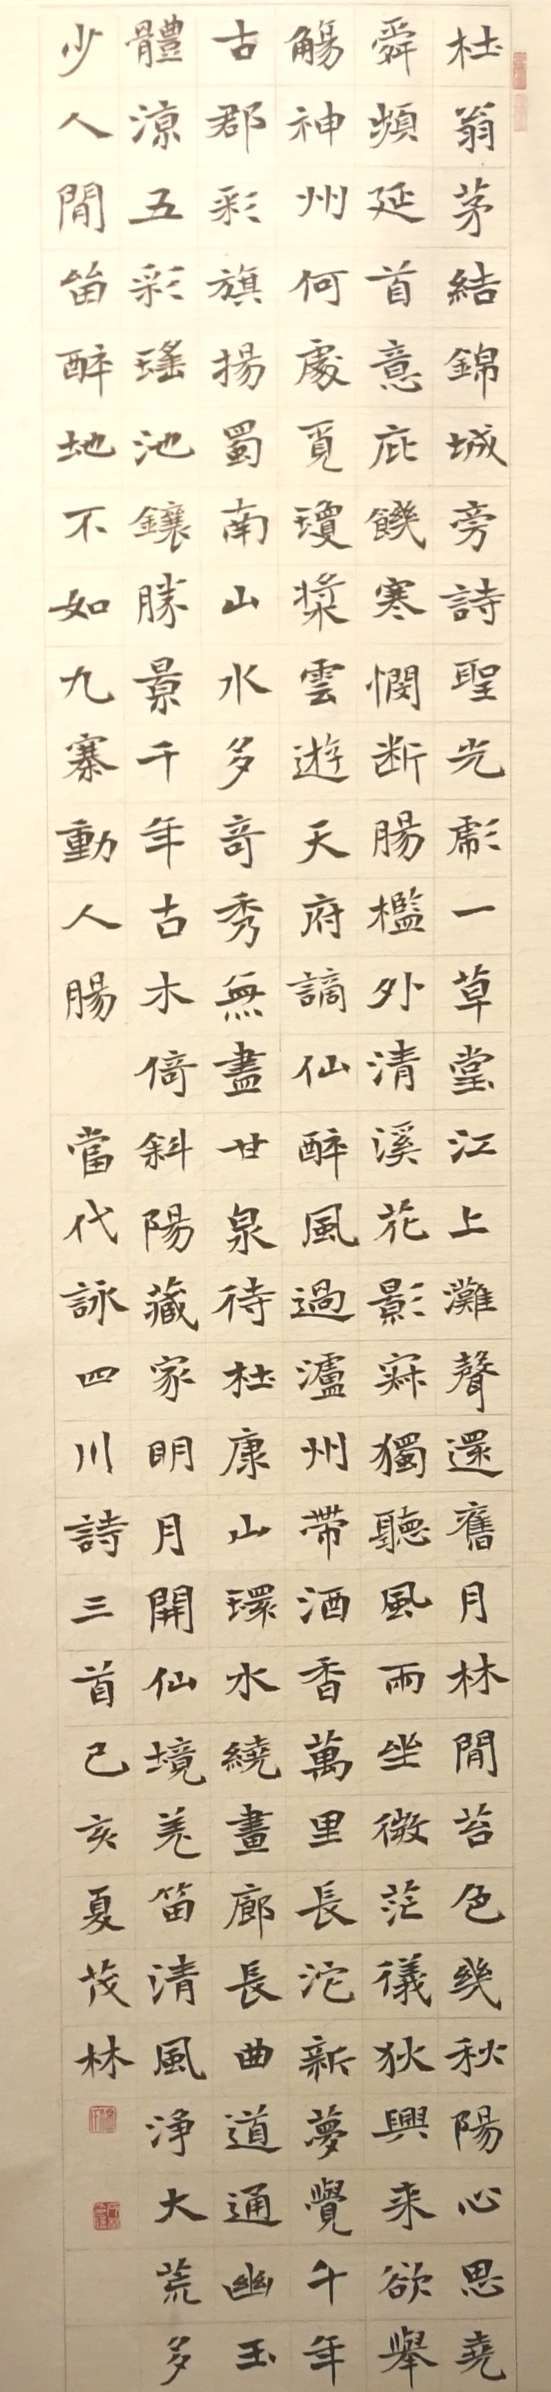 杜翁茅結錦城旁詩聖光彪一草堂江上灘聲還舊月林間苔色幾秋陽心思堯
舜頻延首意庇饑寒憫断腸檻外清溪花影寂獨聽風雨坐微茫儀狄興来欲舉
觴神州何處覓瓊漿雲遊天府謫仙醉風過瀘州帶酒香萬里長沱新夢覺千年
古郡彩旗揚蜀南山水多奇秀無盡甘泉待杜康山環水繞畫廊長曲道通幽玉
體涼五彩瑤池鑲勝景千年古木倚斜陽藏家明月開仙境羌笛清風净大荒多
少人間笛醉地不如九寨動人腸 當代詠四川詩三首己亥夏茂林